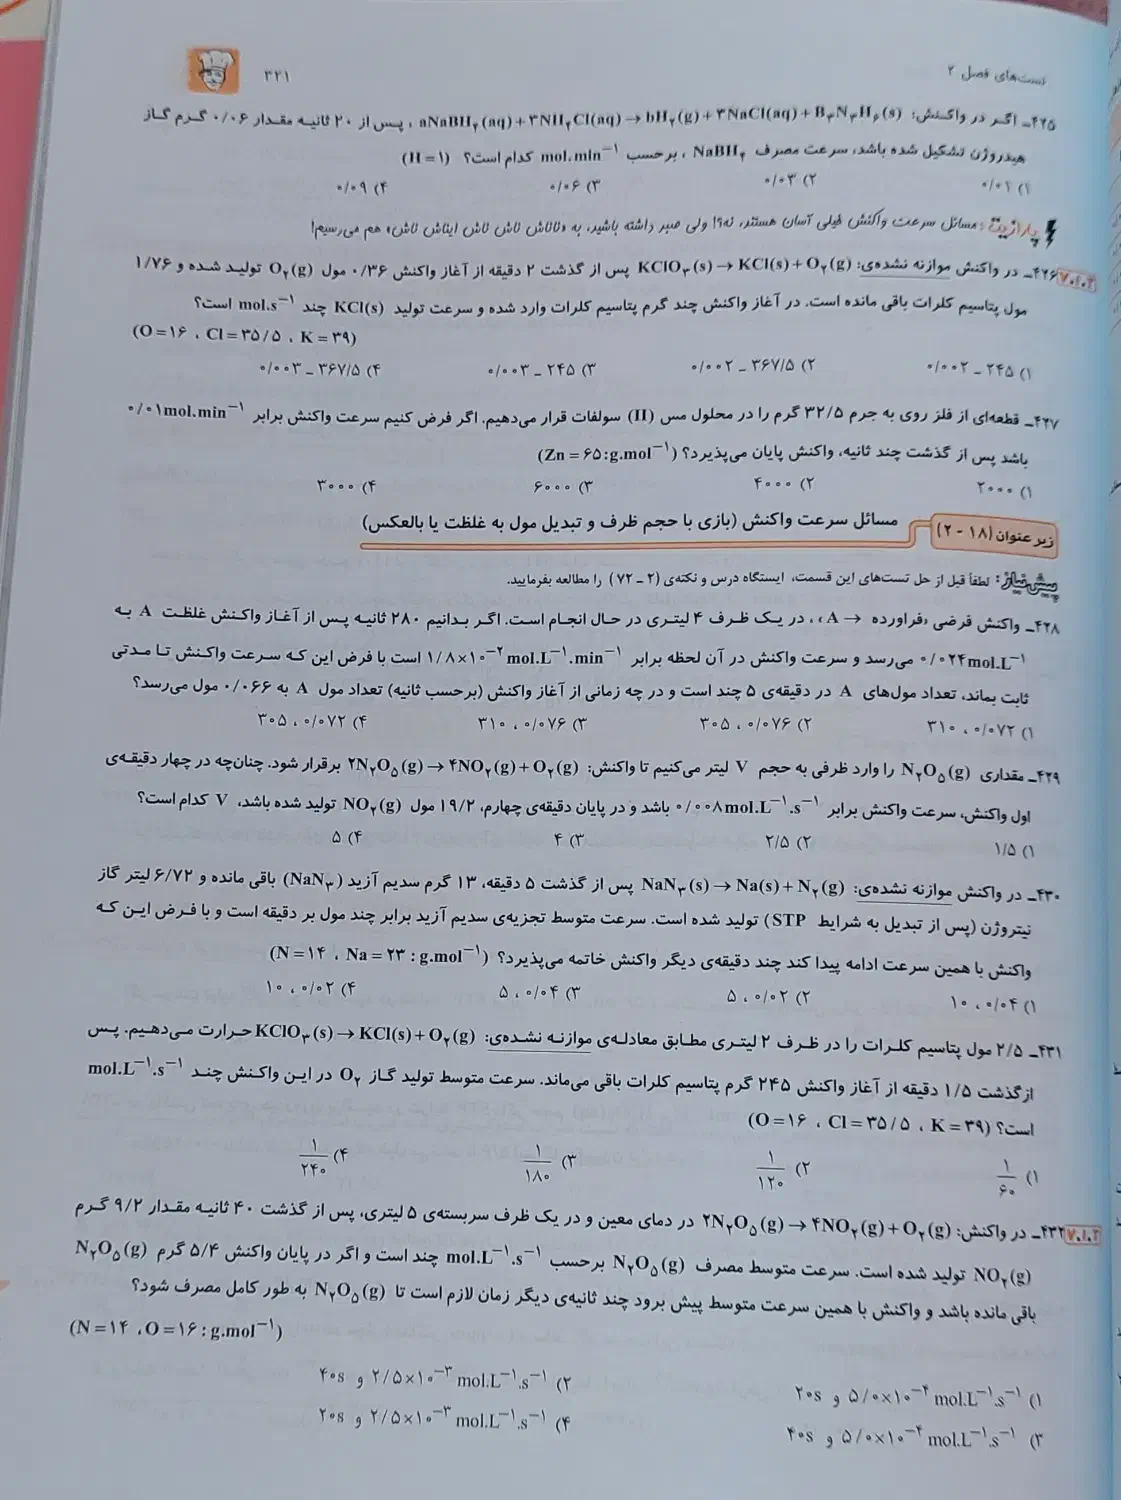 تست‌های فصل ۲
۳۲۱
۴۲۵ـ اگر در واکنش: aNaBH۴(aq)+۳NH۴Cl(aq)→bH۲(g)+۳NaCl(aq)+B۳N۳H۶(s) ، پس از ۲۰ ثانیه مقدار ۰/۰۶ گرم گاز
هیدروژن تشکیل شده باشد، سرعت مصرف NaBH۴ ، برحسب mol.min⁻¹ کدام است؟ (H=۱)
۱) ۰/۰۱ ۲) ۰/۰۳ ۳) ۰/۰۶ ۴) ۰/۰۹
پارازیت: مسائل سرعت واکنش خیلی آسان هستند، نه؟! ولی صبر داشته باشید، به «ناناش ناش ناش ایناش ناش» هم می‌رسیم!
۴۲۶ـ در واکنش موازنه نشده‌ی: KClO۳(s)→KCl(s)+O۲(g) پس از گذشت ۲ دقیقه از آغاز واکنش ۰/۳۶ مول O۲(g) تولید شده و ۱/۷۶
مول پتاسیم کلرات باقی مانده است. در آغاز واکنش چند گرم پتاسیم کلرات وارد شده و سرعت تولید KCl(s) چند mol.s⁻¹ است؟
(O=۱۶ ، Cl=۳۵/۵ ، K=۳۹)
۱) ۲۴۵ ـ ۰/۰۰۲ ۲) ۳۶۷/۵ ـ ۰/۰۰۲ ۳) ۲۴۵ ـ ۰/۰۰۳ ۴) ۳۶۷/۵ ـ ۰/۰۰۳
۴۲۷ـ قطعه‌ای از فلز روی به جرم ۳۲/۵ گرم را در محلول مس (II) سولفات قرار می‌دهیم. اگر فرض کنیم سرعت واکنش برابر ۰/۰۱mol.min⁻¹
باشد پس از گذشت چند ثانیه، واکنش پایان می‌پذیرد؟ (Zn=۶۵:g.mol⁻¹)
۱) ۲۰۰۰ ۲) ۴۰۰۰ ۳) ۶۰۰۰ ۴) ۳۰۰۰
زیر عنوان (۱۸ - ۲) مسائل سرعت واکنش (بازی با حجم ظرف و تبدیل مول به غلظت یا بالعکس)
پیش‌نیاز: لطفاً قبل از حل تست‌های این قسمت، ایستگاه درس و نکته‌ی (۲ ـ ۷۲) را مطالعه بفرمایید.
۴۲۸ـ واکنش فرضی «فراورده → A» ، در یک ظرف ۴ لیتری در حال انجام است. اگر بدانیم ۲۸۰ ثانیه پس از آغاز واکنش غلظت A به
۰/۰۲۴mol.L⁻¹ می‌رسد و سرعت واکنش در آن لحظه برابر ۱/۸×۱۰⁻²mol.L⁻¹.min⁻¹ است با فرض این که سرعت واکنش تا مدتی
ثابت بماند، تعداد مول‌های A در دقیقه‌ی ۵ چند است و در چه زمانی از آغاز واکنش (برحسب ثانیه) تعداد مول A به ۰/۰۶۶ مول می‌رسد؟
۱) ۰/۰۷۲ ، ۳۱۰ ۲) ۰/۰۷۶ ، ۳۰۵ ۳) ۰/۰۷۶ ، ۳۱۰ ۴) ۰/۰۷۲ ، ۳۰۵
۴۲۹ـ مقداری N۲O۵(g) را وارد ظرفی به حجم V لیتر می‌کنیم تا واکنش: ۲N۲O۵(g)→۴NO۲(g)+O۲(g) برقرار شود. چنان‌چه در چهار دقیقه‌ی
اول واکنش، سرعت واکنش برابر ۰/۰۰۸mol.L⁻¹.s⁻¹ باشد و در پایان دقیقه‌ی چهارم، ۱۹/۲ مول NO۲(g) تولید شده باشد، V کدام است؟
۱) ۱/۵ ۲) ۲/۵ ۳) ۴ ۴) ۵
۴۳۰ـ در واکنش موازنه نشده‌ی: NaN۳(s)→Na(s)+N۲(g) پس از گذشت ۵ دقیقه، ۱۳ گرم سدیم آزید (NaN۳) باقی مانده و ۶/۷۲ لیتر گاز
نیتروژن (پس از تبدیل به شرایط STP) تولید شده است. سرعت متوسط تجزیه‌ی سدیم آزید برابر چند مول بر دقیقه است و با فرض این که
واکنش با همین سرعت ادامه پیدا کند چند دقیقه‌ی دیگر واکنش خاتمه می‌پذیرد؟ (N=۱۴ ، Na=۲۳ : g.mol⁻¹)
۱) ۰/۰۴ ، ۱۰ ۲) ۰/۰۲ ، ۵ ۳) ۰/۰۴ ، ۵ ۴) ۰/۰۲ ، ۱۰
۴۳۱ـ ۲/۵ مول پتاسیم کلرات را در ظرف ۲ لیتری مطابق معادله‌ی موازنه نشده‌ی: KClO۳(s)→KCl(s)+O۲(g) حرارت می‌دهیم. پس
ازگذشت ۱/۵ دقیقه از آغاز واکنش ۲۴۵ گرم پتاسیم کلرات باقی می‌ماند. سرعت متوسط تولید گاز O۲ در این واکنش چند mol.L⁻¹.s⁻¹
است؟ (O=۱۶ ، Cl=۳۵/۵ ، K=۳۹)
۱) ۱/۶۰ ۲) ۱/۱۲۰ ۳) ۱/۱۸۰ ۴) ۱/۲۴۰
۴۳۲ـ در واکنش: ۲N۲O۵(g)→۴NO۲(g)+O۲(g) در دمای معین و در یک ظرف سربسته‌ی ۵ لیتری، پس از گذشت ۴۰ ثانیه مقدار ۹/۲ گرم
NO۲(g) تولید شده است. سرعت متوسط مصرف N۲O۵(g) برحسب mol.L⁻¹.s⁻¹ چند است و اگر در پایان واکنش ۵/۴ گرم N۲O۵(g)
باقی مانده باشد و واکنش با همین سرعت متوسط پیش برود چند ثانیه‌ی دیگر زمان لازم است تا N۲O۵(g) به طور کامل مصرف شود؟
(N=۱۴ ،O=۱۶:g.mol⁻¹)
۱) ۵/۰×۱۰⁻⁴ mol.L⁻¹.s⁻¹ و ۲۰s ۲) ۲/۵×۱۰⁻³ mol.L⁻¹.s⁻¹ و ۴۰s
۳) ۵/۰×۱۰⁻⁴ mol.L⁻¹.s⁻¹ و ۴۰s ۴) ۲/۵×۱۰⁻³ mol.L⁻¹.s⁻¹ و ۲۰s